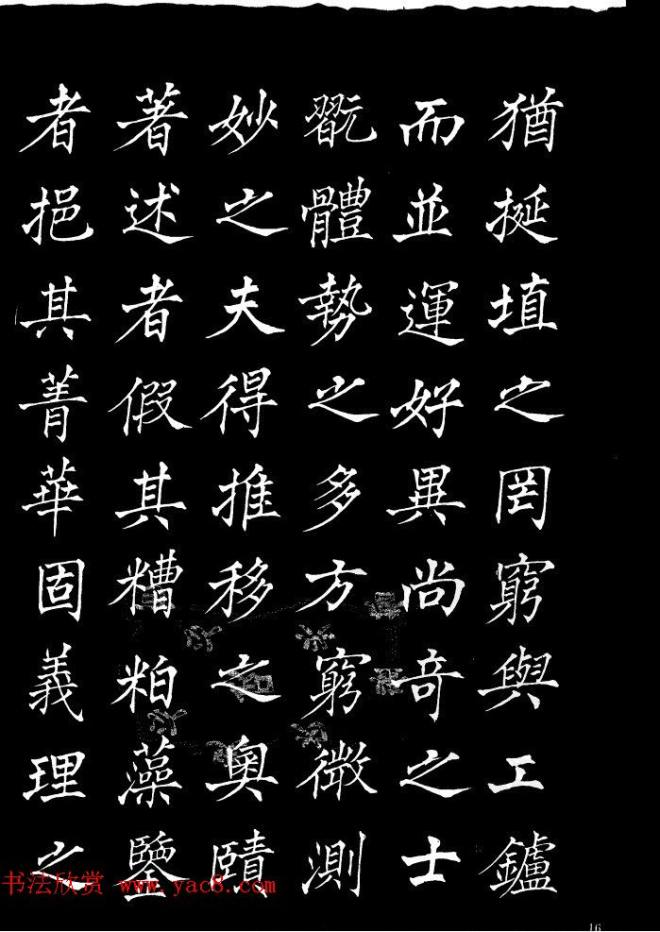 猶挻埴之罔窮與工鑪
而並運好異尚奇之士
翫體勢之多方窮微測
妙之夫得推移之奧賾
著述者假其糟粕藻鑒
者挹其菁華固義理之
书法欣赏 www.yac8.com
16